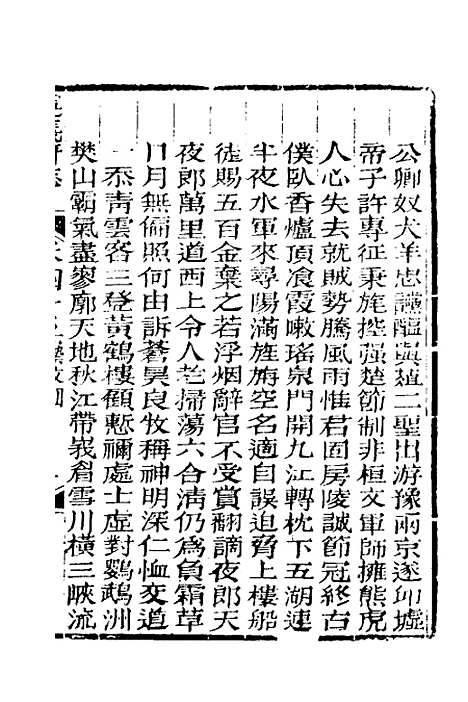 公卿奴犬羊忠讜醢與葅二聖出游豫兩京遂邱墟
帝子許專征秉旄控强楚節制非桓文軍師擁熊虎
人心失去就賊勢騰風雨惟君固房陵誠節冠終古
僕臥香爐頂飡霞嗽瑤泉門開九江轉枕下五湖連
半夜水軍來尋陽滿旌旃空名適自誤迫脅上樓船
徒賜五百金棄之若浮烟辭官不受賞翻謫夜郎天
夜郎萬里道西上令人老掃蕩六合清仍爲負霜草
日月無偏照何由訴蒼昊良牧稱神明深仁恤交道
一忝青雲客三登黃鶴樓顧慙禰處士虛對鸚鵡洲
樊山霸氣盡寥廓天地秋江帶峩眉雪川橫三峽流